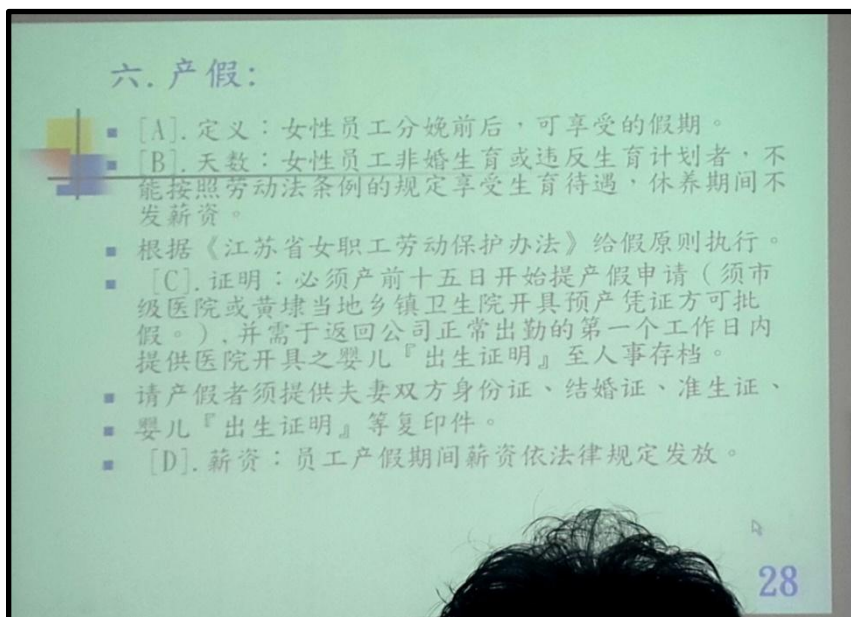 六.产假:
[A].定义：女性员工分娩前后，可享受的假期。
[B].天数：女性员工非婚生育或违反生育计划者，不
能按照劳动法条例的规定享受生育待遇，休养期间不
发薪资。
根据《江苏省女职工劳动保护办法》给假原则执行。
[C].证明：必须产前十五日开始提产假申请（须市
级医院或黄埭当地乡镇卫生院开具预产凭证方可批
假。）,并需于返回公司正常出勤的第一个工作日内
提供医院开具之婴儿『出生证明』至人事存档。
请产假者须提供夫妻双方身份证、结婚证、准生证、
婴儿『出生证明』等复印件。
[D].薪资：员工产假期间薪资依法律规定发放。
28